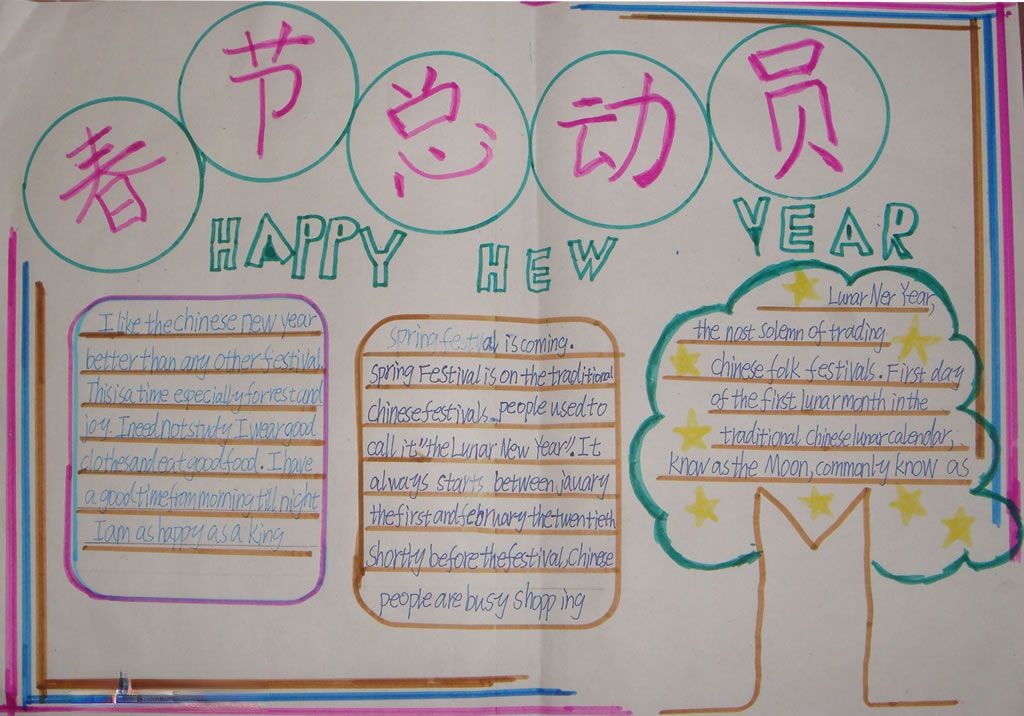 春节总动员
HAPPY HEW YEAR
I like the chinese new year
better than any other festival
This is a time especially for rest and
joy. I need not study I wear good
clothes and eat good food. I have
a good time from morning till night
I am as happy as a king
spring festival is coming.
spring Festival is on the traditional
chinese festivals. people used to
call it "the Lunar New Year". It
always starts between january
the first and february the twentieth
shortly before the festival, Chinese
people are busy shopping
Lunar Ner Year,
the nost solemn of trading
chinese folk festivals. First day
of the first lunar month in the
traditional Chinese lunar calendar,
know as the Moon, commonly know as